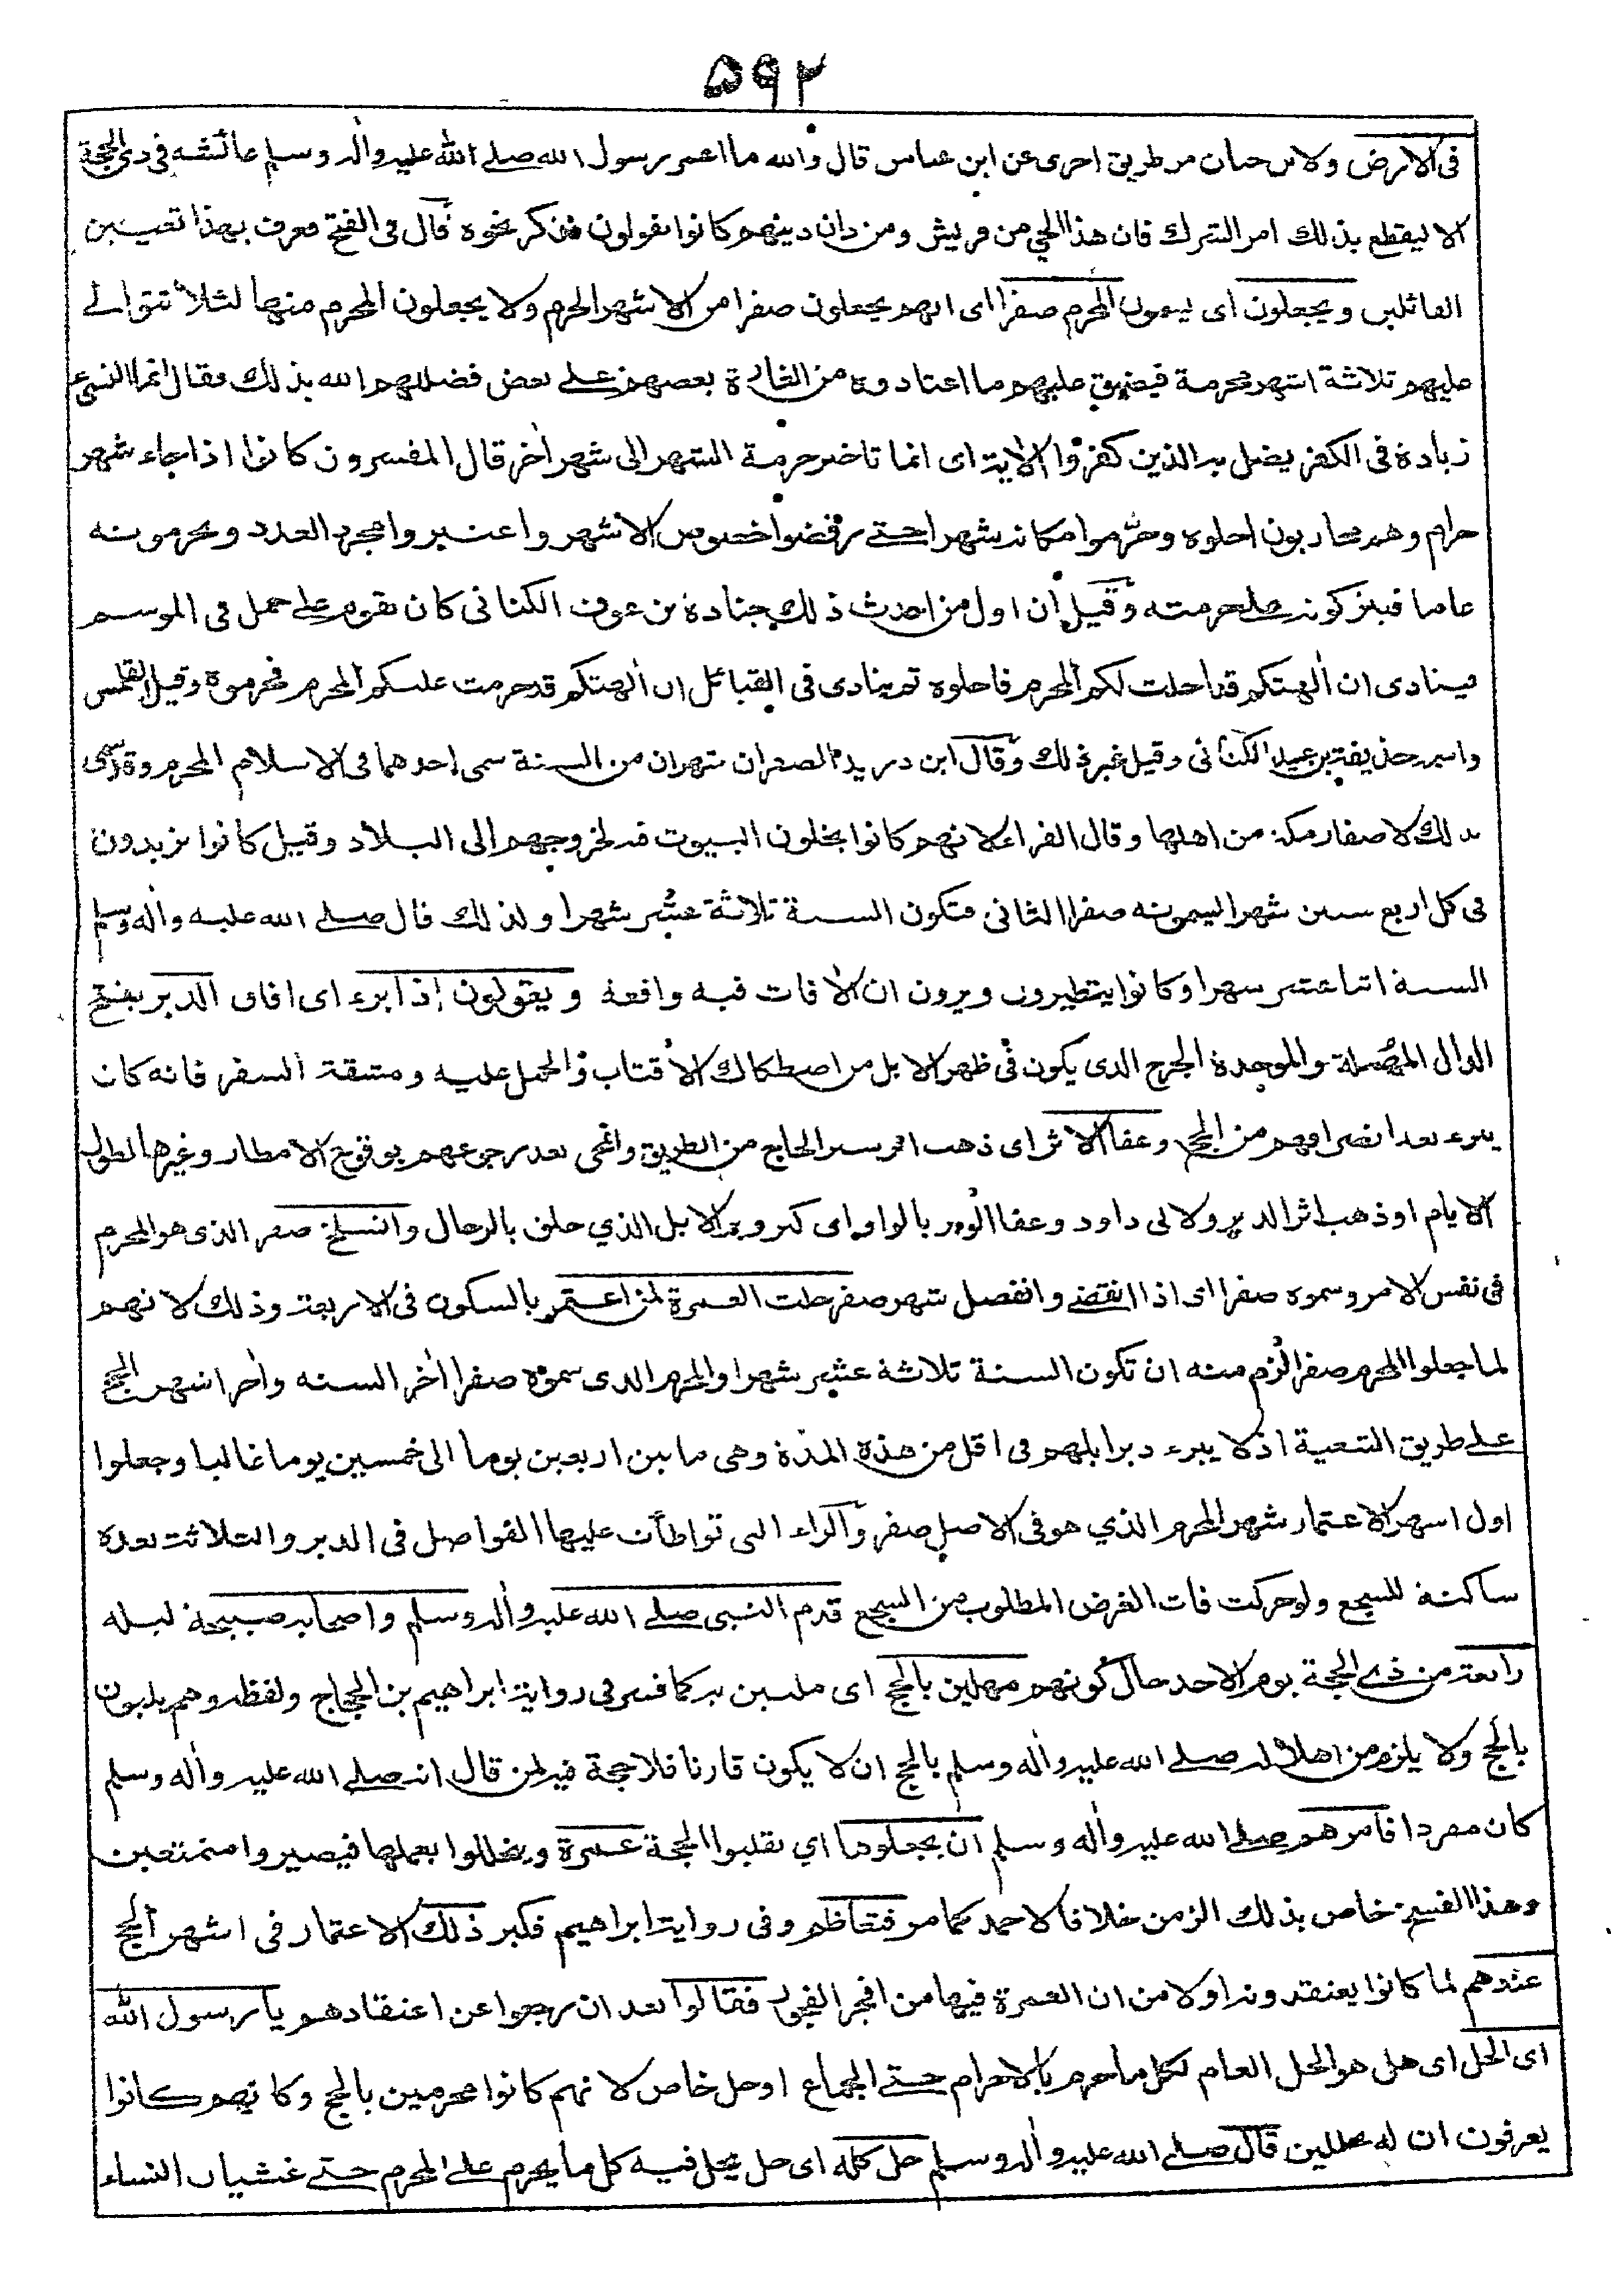 ۵۹۲
فى الارض ولابن حبان من طريق اخرى عن ابن عباس قال والله ما اعمر رسول الله صلے الله عليه واٰله وسلم عائشه فى ذى الحجة
الا ليقطع بذلك امر الشرك فان هذا الحي من قريش ومن دان دينهم كانوا يقولون فذكر نحوه قال فى الفتح فعرف بهذا تعيين
القائلين ويجعلون اى يسمون المحرم صفرا اى انهم يجعلون صفرا من الاشهر الحرم ولا يجعلون المحرم منها لئلا تتوالے
عليهم ثلاثة اشهر محرمة فيضيق عليهم ما اعتادوه من الغارة بعضهم علے بعض فضللهم الله بذلك فقال انما النسئ
زيادة فى الكفر يضل به الذين كفروا الاٰية اى انما تاخير حرمة الشهر الى شهر اٰخر قال المفسرون كانوا اذا جاء شهر
حرام وهم محاربون احلوه وحرّموا مكانه شهرا حتے رفضوا خصوص الاشهر واعتبروا مجرد العدد ويحرمونه
عاما فيتركونه علے حرمته وقيل ان اول من احدث ذلك جنادة بن عوف الكنانى كان يقوم علے جمل فى الموسم
فينادى ان اٰلهتكم قد احلت لكم المحرم فاحلوه ثم ينادى فى القبائل ان اٰلهتكم قد حرمت عليكم المحرم فحرموه وقيل القلمس
واسمه حذيفة بن عبيد الكنانى وقيل غير ذلك وقال ابن دريد الصفران شهران من السنة سمى احدهما فى الاسلام المحرم وقد سمى
بذلك لاصفار مكة من اهلها وقال الفراء لانهم كانوا يخلون البيوت فيه لخروجهم الى البلاد وقيل كانوا يزيدون
فى كل اربع سنين شهرا يسمونه صفرا الثانى فتكون السنة ثلاثة عشر شهرا ولذلك قال صلے الله عليه واٰله وسلم
السنة اثنا عشر شهرا وكانوا يتطيرون ويرون ان الاٰفات فيه واقعة ويقولون إذا برء اى افاق الدبر بفتح
الدال المهملة والموحدة الجرح الذى يكون فى ظهر الابل من اصطكاك الاقتاب والحمل عليه ومشقة السفر فانه كان
يبرء بعد انصرافهم من الحج وعفا الاثر اى ذهب اثر سير الحاج من الطريق وانمحى بعد رجوعهم بوقوع الامطار وغيرها لطول
الايام او ذهب اثر الدبر ولابى داود وعفا الوبر بالواو اى كثر وبر الابل الذي حلق بالرحال وانسلخ صفر الذى هو المحرم
فى نفس الامر وسموه صفرا اى اذا انقضے وانفصل شهر صفر حلت العمرة لمن اعتمر بالسكون فى الاربعة وذلك لانهم
لما جعلوا المحرم صفرا لزم منه ان تكون السنة ثلاثة عشر شهرا والمحرم الذى سموه صفرا اٰخر السنه واٰخر اشهر الحج
علے طريق التبعية اذ لا يبرء دبر ابلهم فى اقل من هذه المدة وهى ما بين اربعين يوما الى خمسين يوما غالبا وجعلوا
اول اشهر الاعتمار شهر المحرم الذي هو فى الاصل صفر والراء التى تواطأت عليها الفواصل فى الدبر والثلاثة بعده
ساكنة للسجع ولو حركت فات الغرض المطلوب من السجع قدم النبى صلے الله عليه واٰله وسلم واصحابه صبيحة ليلة
رابعة من ذے الحجة يوم الاحد حال كونهم مهلين بالحج اى ملبين به كما فسر فى رواية ابراهيم بن الحجاج ولفظه وهم يلبون
بالحج ولا يلزم من اهلاله صلے الله عليه واٰله وسلم بالحج ان لا يكون قارنا فلا حجة فيه لمن قال انه صلے الله عليه واٰله وسلم
كان مفردا فامرهم صلے الله عليه واٰله وسلم ان يجعلوها اي يقلبوا الحجة عمرة ويتحللوا بعملها فيصيروا متمتعين
وهذا الفسخ خاص بذلك الزمن خلافا لاحمد كما مر فتعاظم وفى رواية ابراهيم فكبر ذلك الاعتمار فى اشهر الحج
عندهم لما كانوا يعتقدونه اولا من ان العمرة فيها من افجر الفجور فقالوا بعد ان رجعوا عن اعتقادهم يا رسول الله
اى الحل اى هل هو الحل العام لكل ما حرم بالاحرام حتے الجماع او حل خاص لانهم كانوا محرمين بالحج وكانهم كانوا
يعرفون ان له تحللين قال صلے الله عليه واٰله وسلم حل كله اى حل يحل فيه كل ما يحرم علے المحرم حتے غشيان النساء